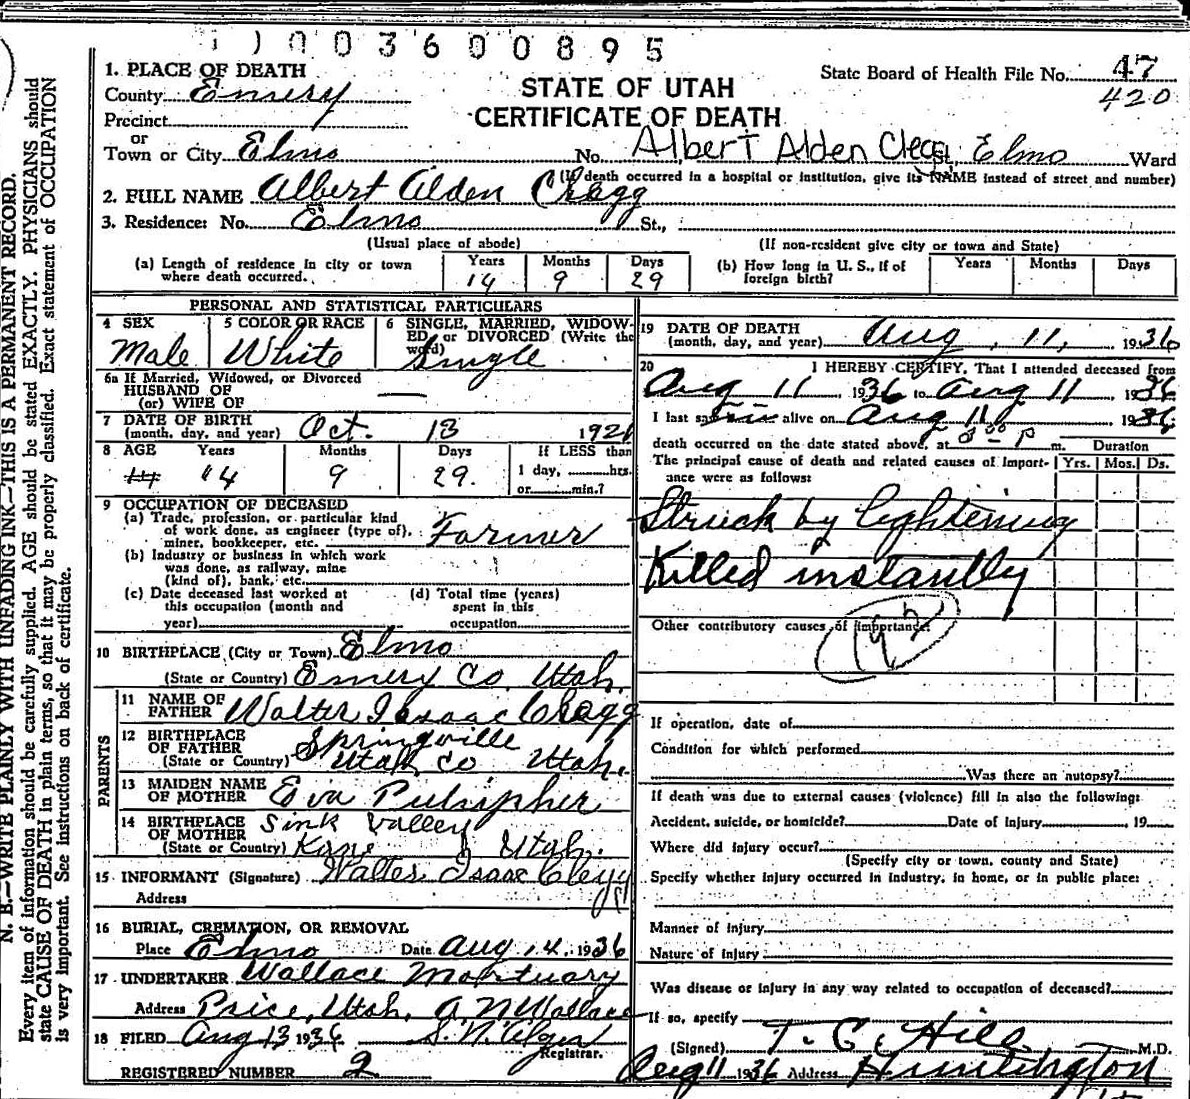 003600895
1. PLACE OF DEATH
STATE OF UTAH
CERTIFICATE OF DEATH
State Board of Health File No. 47
420
County Emery
Precinct
or
Town or City Elmo No. Albert Alden Clegg St. Elmo Ward
(If death occurred in a hospital or institution, give its NAME instead of street and number)
2. FULL NAME Albert Alden Clegg
3. Residence: No. Elmo St.,
(Usual place of abode)
(If non-resident give city or town and State)
(a) Length of residence in city or town where death occurred. Years 14 Months 9 Days 29
(b) How long in U. S., if of foreign birth? Years Months Days
PERSONAL AND STATISTICAL PARTICULARS
4 SEX Male
5 COLOR OR RACE White
6 SINGLE, MARRIED, WIDOWED, or DIVORCED (Write the word) Single
6a If Married, Widowed, or Divorced
HUSBAND OF
(or) WIFE OF
7 DATE OF BIRTH
(month, day, and year) Oct. 13 1921
8 AGE Years 14 Months 9 Days 29.
If LESS than
1 day, hrs.
or min.?
9 OCCUPATION OF DECEASED
(a) Trade, profession, or particular kind of work done, as engineer (type of), miner, bookkeeper, etc. Farmer
(b) Industry or business in which work was done, as railway, mine (kind of), bank, etc.
(c) Date deceased last worked at this occupation (month and year)
(d) Total time (years) spent in this occupation
10 BIRTHPLACE (City or Town) Elmo
(State or Country) Emery Co. Utah.
PARENTS
11 NAME OF FATHER Walter Isaac Clegg
12 BIRTHPLACE OF FATHER Springville
(State or Country) Utah Co Utah.
13 MAIDEN NAME OF MOTHER Eva Pulsipher
14 BIRTHPLACE OF MOTHER Sink Valley
(State or Country) Kane Utah.
15 INFORMANT (Signature) Walter Isaac Clegg
Address
16 BURIAL, CREMATION, OR REMOVAL
Place Elmo Date Aug 14, 1936
17 UNDERTAKER Wallace Mortuary
Address Price, Utah. A. N. Wallace
18 FILED Aug 13 1936
Registrar.
REGISTERED NUMBER 2
19 DATE OF DEATH
(month, day, and year) Aug. 11, 1936
20 I HEREBY CERTIFY, That I attended deceased from
Aug 11 1936 to Aug 11 1936
I last saw him alive on Aug 11 1936
death occurred on the date stated above, at 8 00 P m.
Duration
The principal cause of death and related causes of importance were as follows:
Yrs. Mos. Ds.
Struck by lightening
Killed instantly
Other contributory causes of importance:
If operation, date of
Condition for which performed
Was there an autopsy?
If death was due to external causes (violence) fill in also the following:
Accident, suicide, or homicide? Date of injury 19
Where did injury occur?
(Specify city or town, county and State)
Specify whether injury occurred in industry, in home, or in public place:
Manner of injury
Nature of injury
Was disease or injury in any way related to occupation of deceased?
If so, specify
(Signed) T. C. Hill M.D.
Aug 11 1936 Address Huntington
N. B.—WRITE PLAINLY WITH UNFADING INK—THIS IS A PERMANENT RECORD.
Every item of information should be carefully supplied. AGE should be stated EXACTLY. PHYSICIANS should
state CAUSE OF DEATH in plain terms, so that it may be properly classified. Exact statement of OCCUPATION
is very important. See instructions on back of certificate.